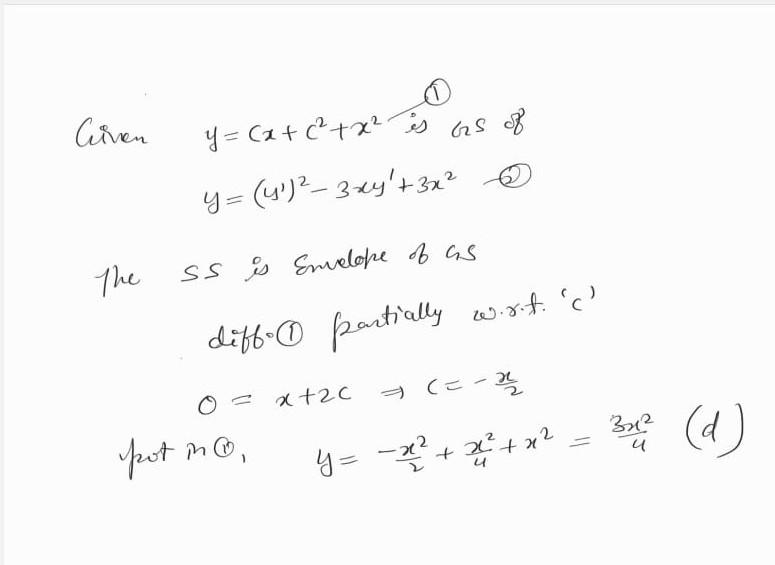 ①
Given y = Cx + C² + x² is GS of
y = (y')² - 3xy' + 3x² ②
The SS is Envelope of GS
diff. ① partially w.r.t. 'c'
0 = x + 2C ⇒ C = -x/2
put in ①, y = -x²/2 + x²/4 + x² = 3x²/4 (d)